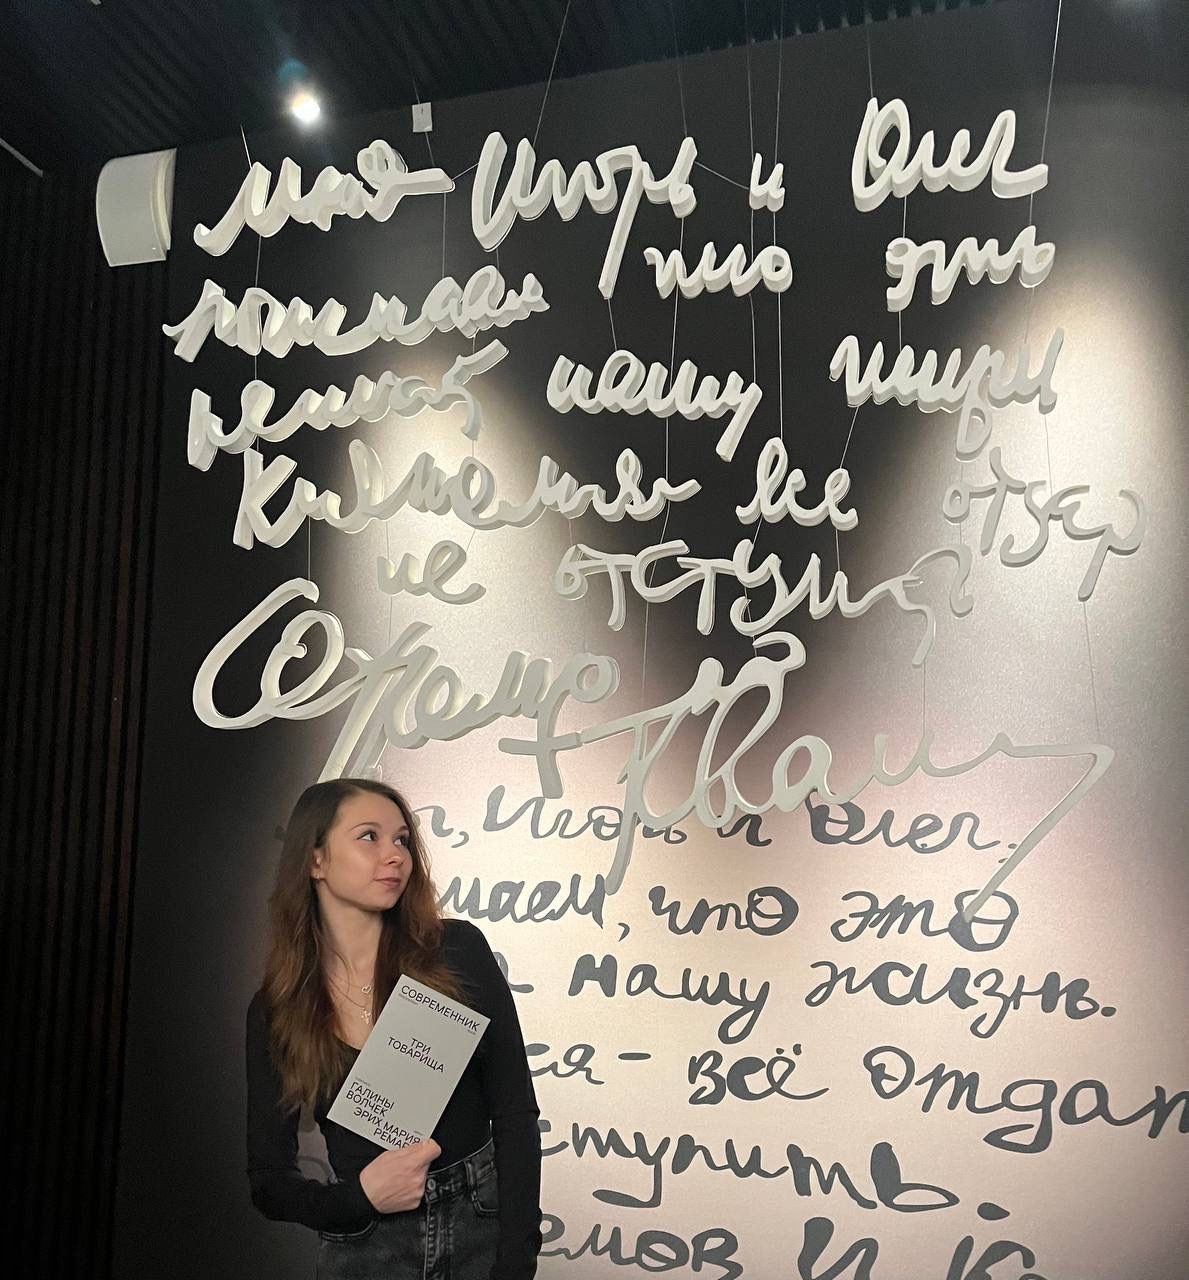 Игорь и Олег
понимаем что это
нашу жизнь
все отдать
не отступить
Ефремов
Кваша
, Игорь и Олег,
маем, что это
а нашу жизнь.
ся - всё отдат
ступить.
емов И К
СОВРЕМЕННИК
ТРИ
ТОВАРИЩА
ГАЛИНЫ
ВОЛЧЕК
ЭРИХ МАРИЯ
РЕМАР